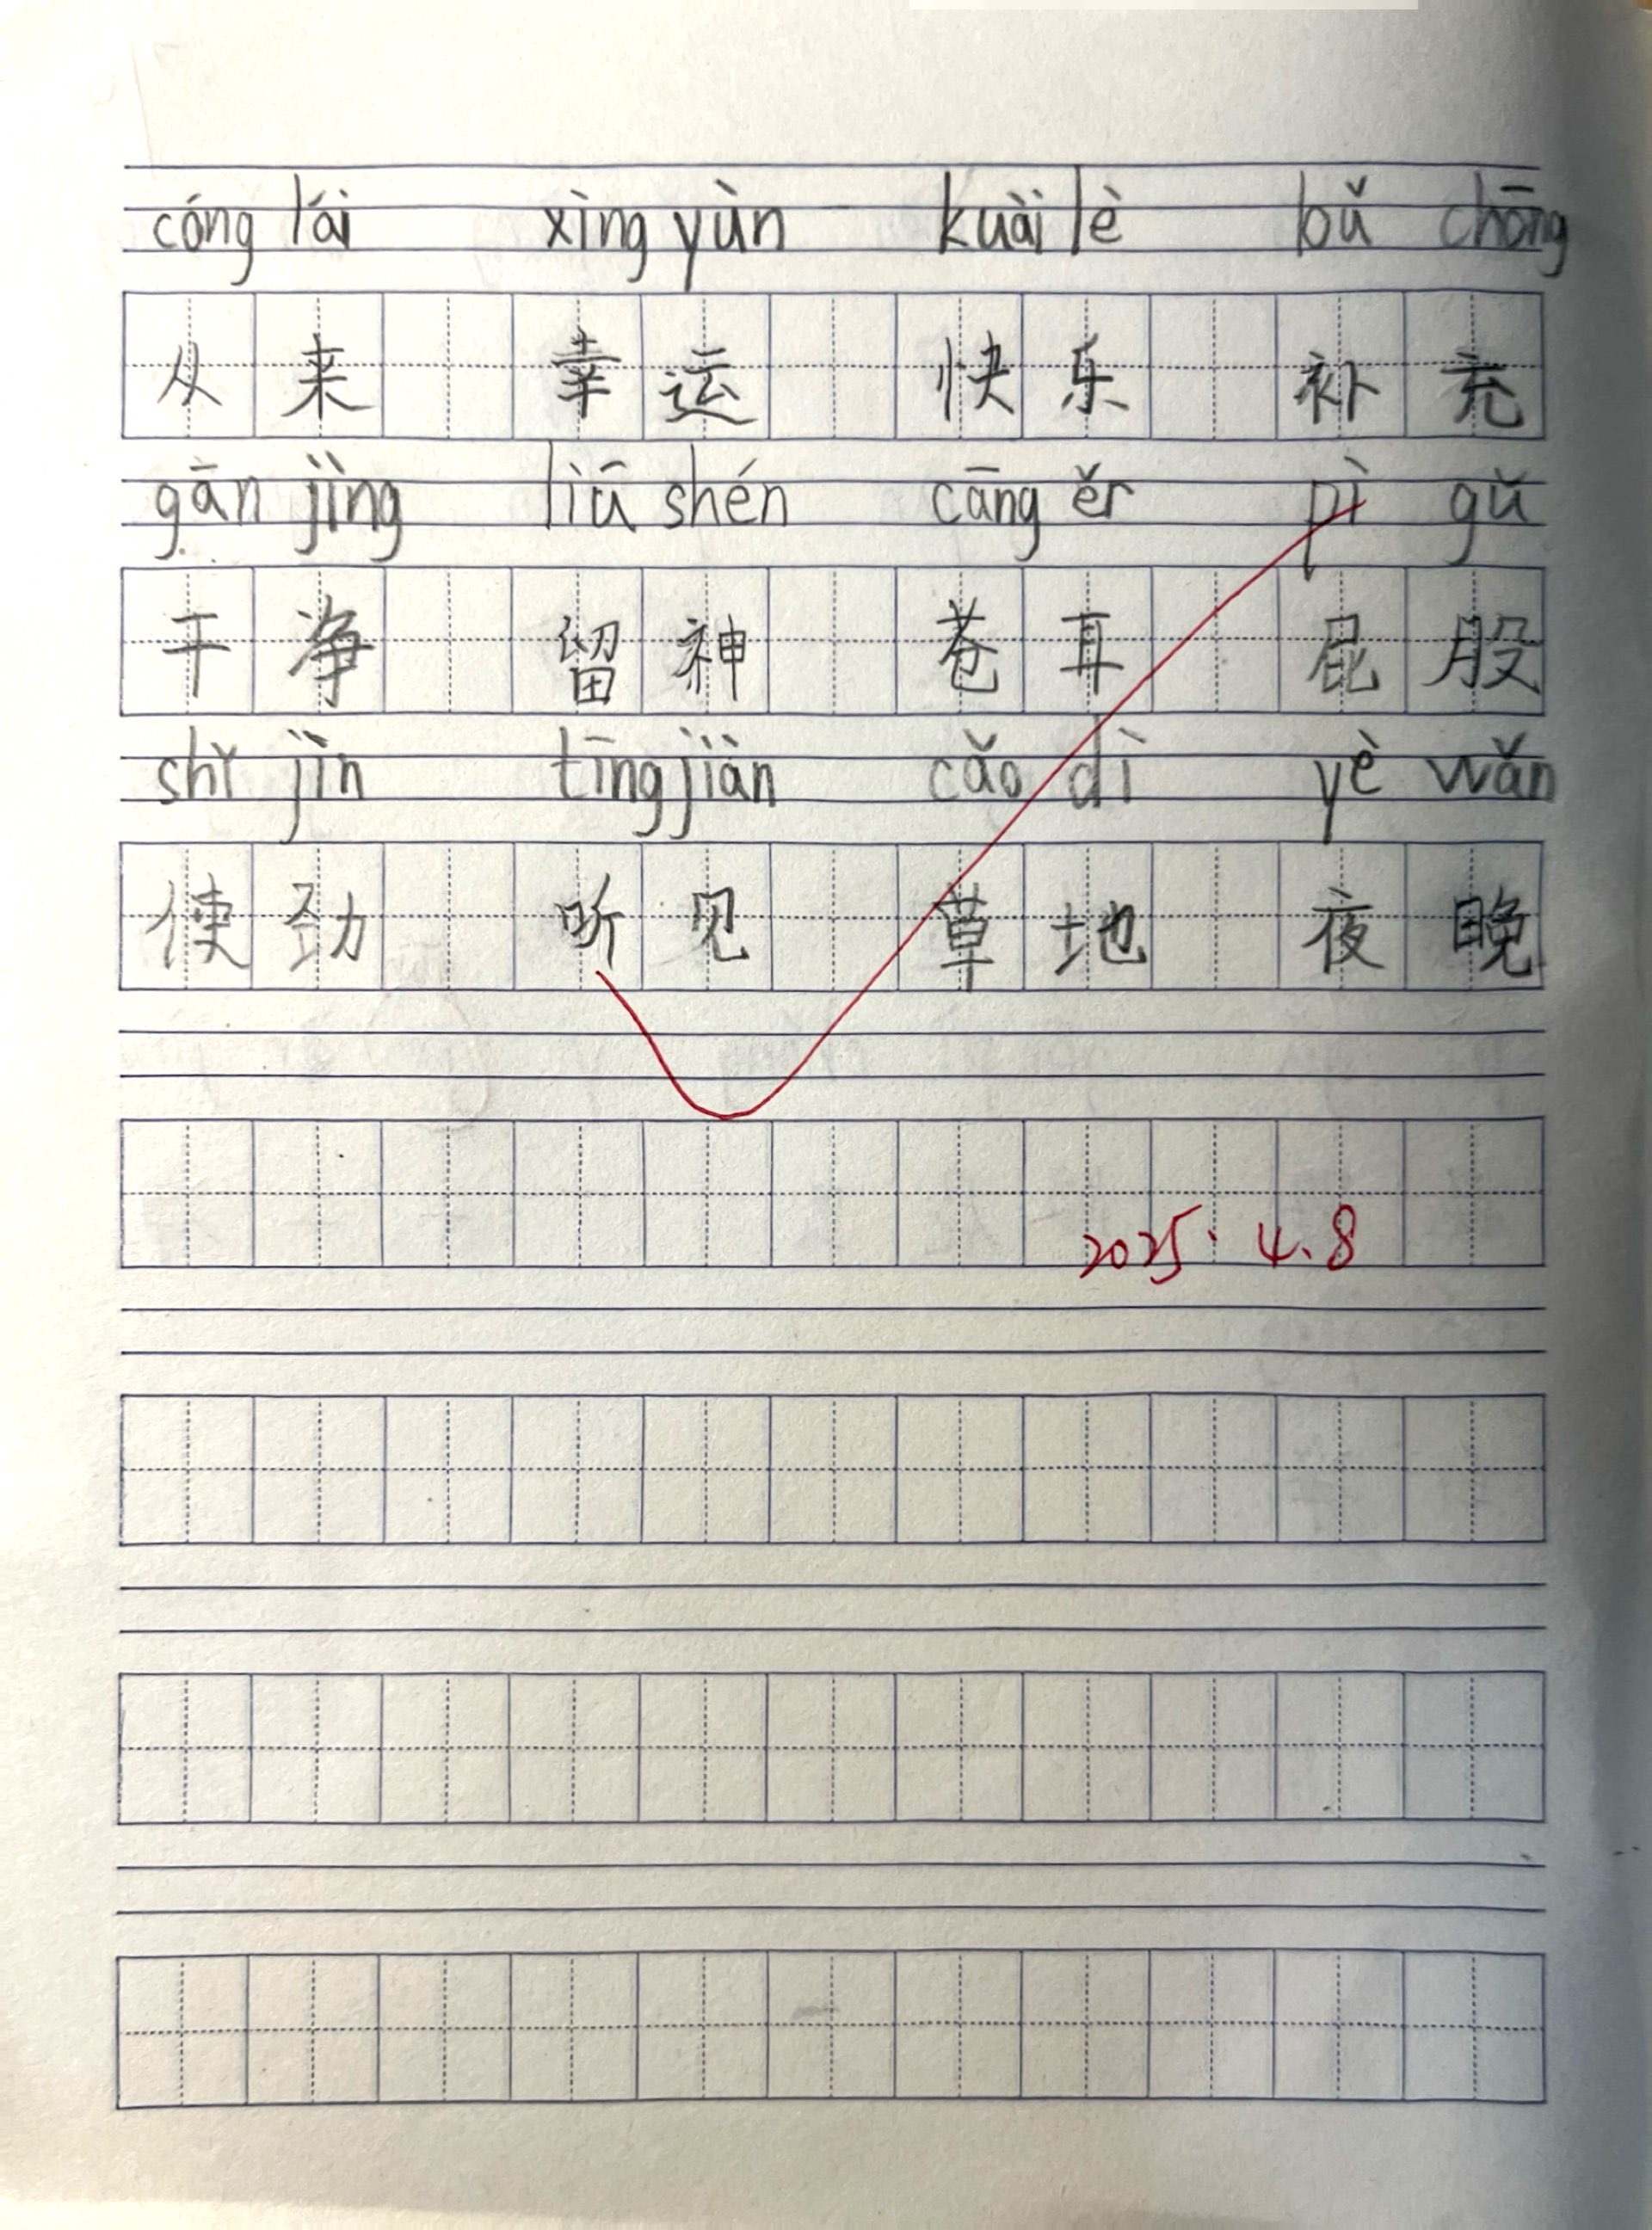 cóng lái xìng yùn kuài lè bǔ chōng
从来 幸运 快乐 补充
gān jìng liū shén cāng ěr pì gǔ
干净 留神 苍耳 屁股
shǐ jìn tīng jiàn cǎo dì yè wǎn
使劲 听见 草地 夜晚
2025.4.8